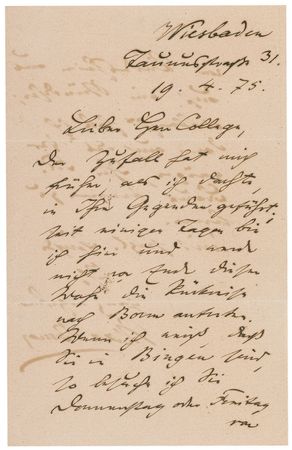 Wiesbaden
Taunusstraße 31.
19. 4. 75.
Lieber Herr College,
Der Zufall hat mich
früher, als ich dachte,
in Ihre Gegenden geführt.
Seit einigen Tagen bin
ich hier und werde
nicht vor Ende dieser
Woche die Rückreise
nach Bonn antreten.
Wenn ich weiß, daß
Sie in Bingen sind,
so besuche ich Sie
Donnerstag oder Freitag
von